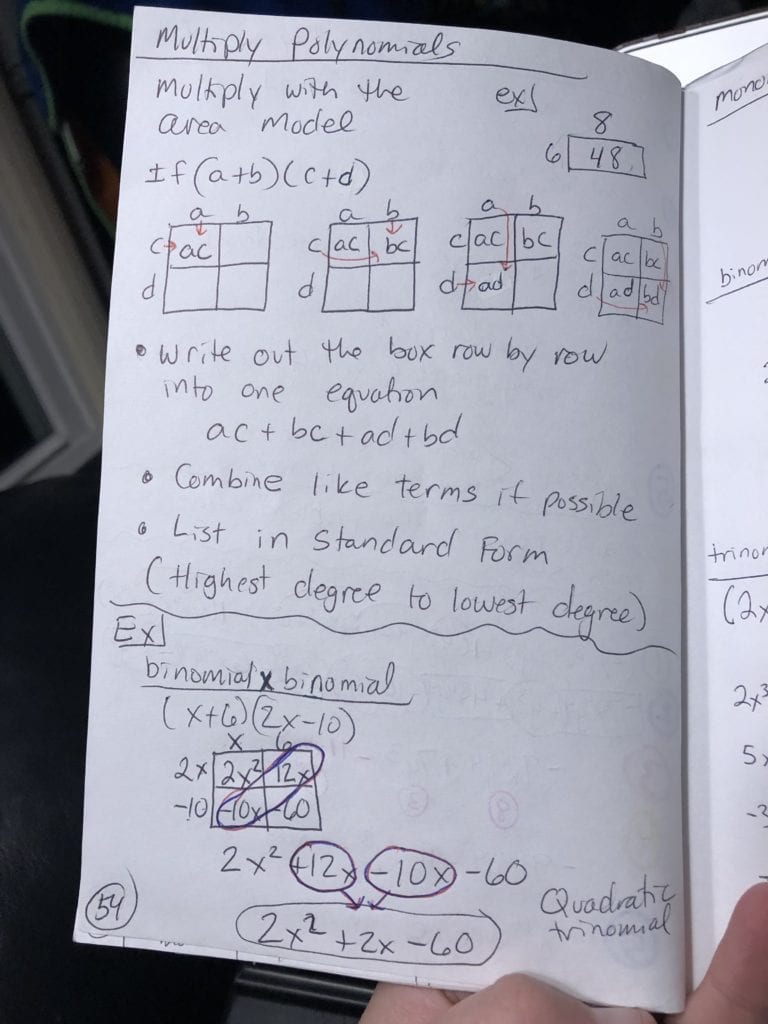 Multiply Polynomials
Multiply with the
area model
ex)
8
6 48
If (a+b)(c+d)
a b
c ac
d
a b
c ac bc
d
a b
c ac bc
d ad
a b
c ac bc
d ad bd
• Write out the box row by row
into one equation
ac + bc + ad + bd
• Combine like terms if possible
• List in Standard Form
(Highest degree to lowest degree)
Ex)
binomial x binomial
(x+6)(2x-10)
x 6
2x 2x² 12x
-10 -10x -60
2x² +12x -10x -60
2x² +2x -60
Quadratic
trinomial
54
(2x
2x³